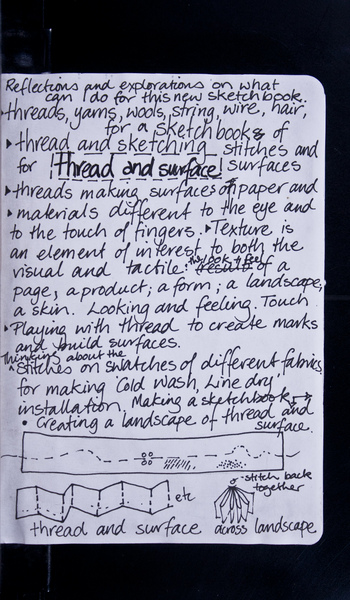 Reflections and explorations on what
can I do for this new sketchbook.
threads, yarns, wools, string, wire, hair,
for a sketchbook & of
▸ thread and sketching stitches and
for Thread and surface surfaces
▸ threads making surfaces on paper and
▸ materials different to the eye and
to the touch of fingers. ▸ Texture is
an element of interest to both the
visual and tactile: the look & feel of a
page, a product; a form; a landscape,
a skin. Looking and feeling. Touch
▸ Playing with thread to create marks
and build surfaces.
Thinking about the
stitches on swatches of different fabrics
for making 'Cold Wash, Line dry'
installation. Making a sketchbook
• Creating a landscape of thread and
surface.
stitch back
together
etc
thread and surface across landscape